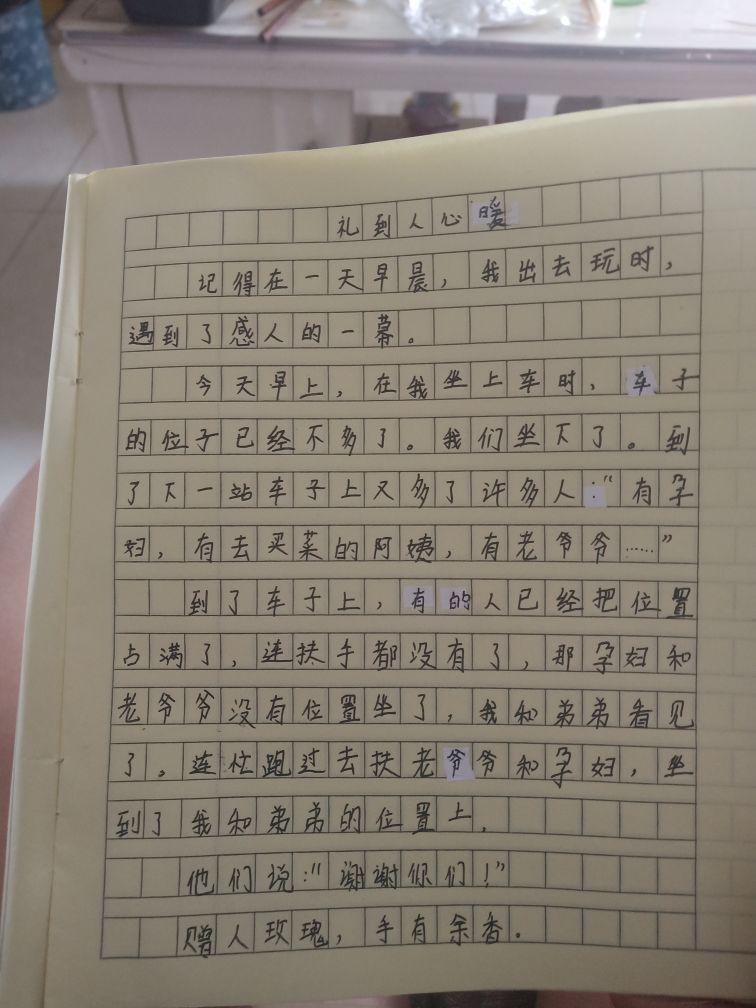 礼到人心暖
记得在一天早晨，我出去玩时，
遇到了感人的一幕。
今天早上，在我坐上车时，车子
的位子已经不多了。我们坐下了。到
了下一站车子上又多了许多人："有孕
妇，有去买菜的阿姨，有老爷爷……"
到了车子上，有的人已经把位置
占满了，连扶手都没有了，那孕妇和
老爷爷没有位置坐了，我和弟弟看见
了。连忙跑过去扶老爷爷和孕妇，坐
到了我和弟弟的位置上.
他们说："谢谢你们！"
赠人玫瑰，手有余香。